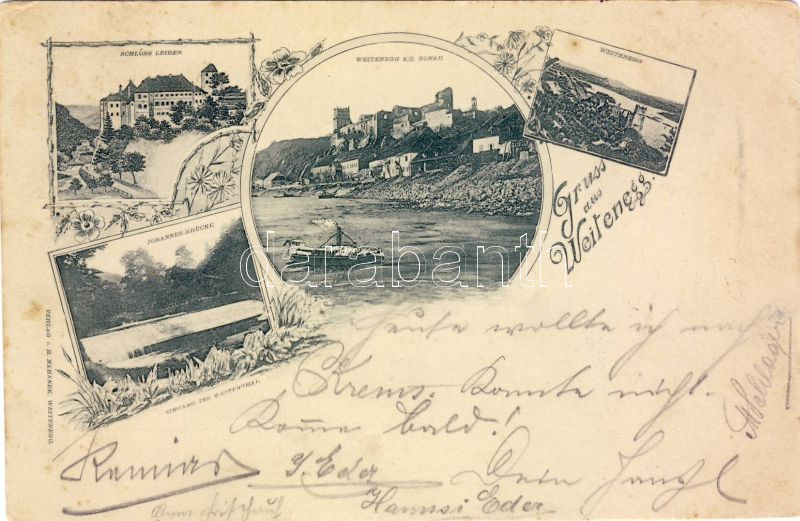 SCHLOSS LEIBEN
WEITENEGG A/D. DONAU.
WEITENEGG
Gruss
aus
Weitenegg.
JOHANNES-BRÜCKE
EINGANG INS WEITENTHAL
VERLAG v. WEITENEGG.
darabanth
Heute wollte ich nach
Krems. Konnte nicht.
Komme bald!
Dein
Eder
Hannsi Eder